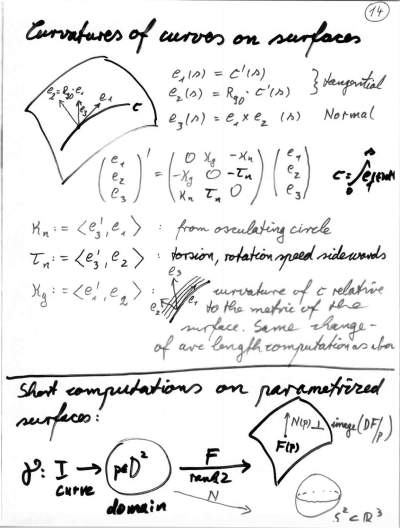 14
Curvatures of curves on surfaces
e₂=R₉₀·e₁ e₁ e₃ c
e₁(s) = c'(s)
e₂(s) = R₉₀·c'(s) } tangential
e₃(s) = e₁×e₂ (s) Normal
(e₁ e₂ e₃)' = (0 ϰg -ϰn; -ϰg 0 -τn; ϰn τn 0) (e₁ e₂ e₃)
ϰn := <e₃', e₁> : from osculating circle
τn := <e₃', e₂> : torsion, rotation speed sidewards
ϰg := <e₁', e₂> : curvature of c relative
e₃ e₂ e₁
to the metric of the
surface. Same change-
of arc length computation as above
Short computations on parametrized
surfaces:
N(p) ⊥ image(DF/p)
F(p)
γ: I → p∈D² F
curve domain rank 2
N
S² ⊂ ℝ³